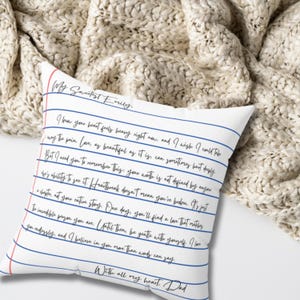 My Sweetest Emily,
I know your heart feels heavy right now, and I wish I could take
away the pain. Love, as beautiful as it is, can sometimes hurt deeply.
But I need you to remember this: your worth is not defined by anyone
else's ability to see it. Heartbreak doesn't mean you're broken. It's just
a chapter, not your entire story. One day, you'll find a love that matches
the incredible person you are. Until then, be gentle with yourself. I love
you endlessly, and I believe in you more than words can say.
With all my heart, Dad